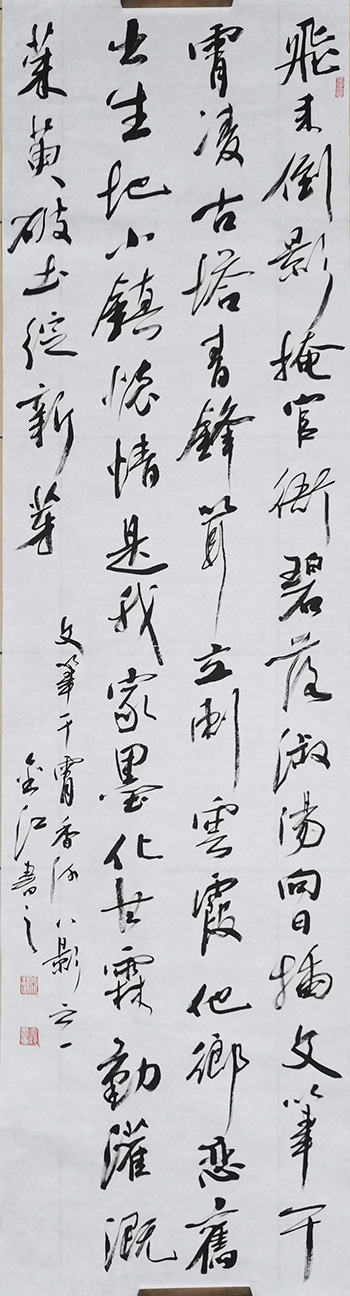 飛來倒影掩官衙碧落淑陽向日插文筆干
霄凌古塔青鋒聳立刺雲霞他鄉恋舊
出生地小鎮懷情是我家墨化甘霖勤灌溉
葉黄破土綻新芽
文筆干霄香河八影之一
金江書之